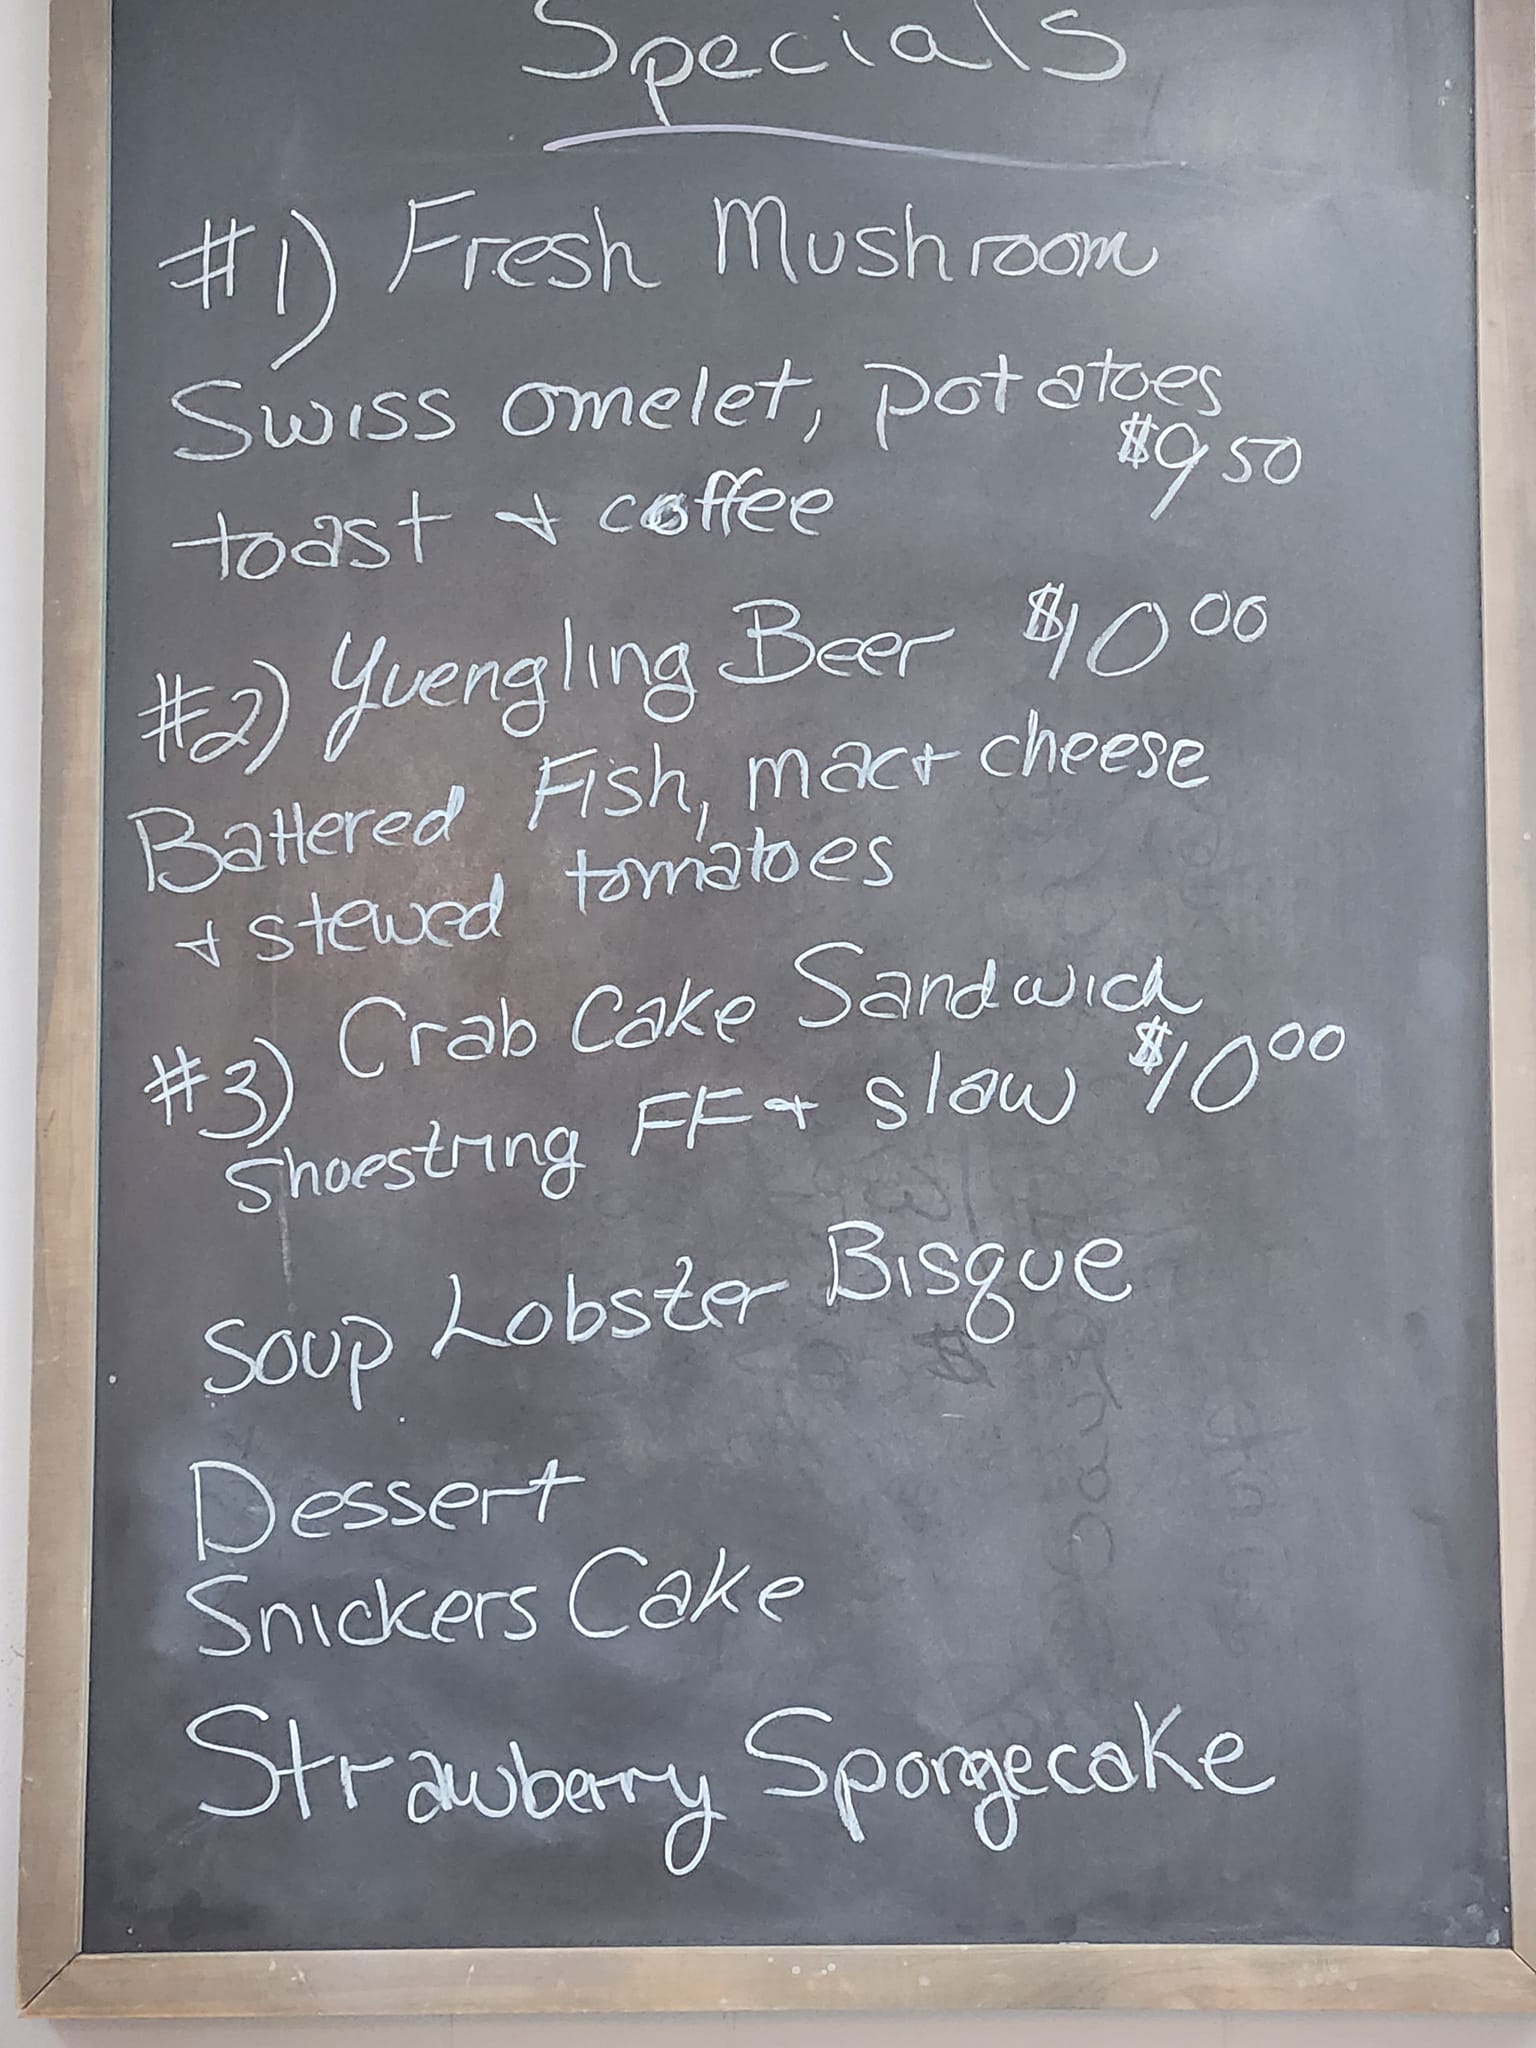 Specials
#1) Fresh Mushroom
Swiss omelet, potatoes
$9 50
toast & coffee
#2) Yuengling Beer $10 00
Battered Fish, mac + cheese
+ stewed tomatoes
#3) Crab Cake Sandwich
Shoestring FF + slaw $10 00
Soup Lobster Bisque
Dessert
Snickers Cake
Strawberry Spongecake